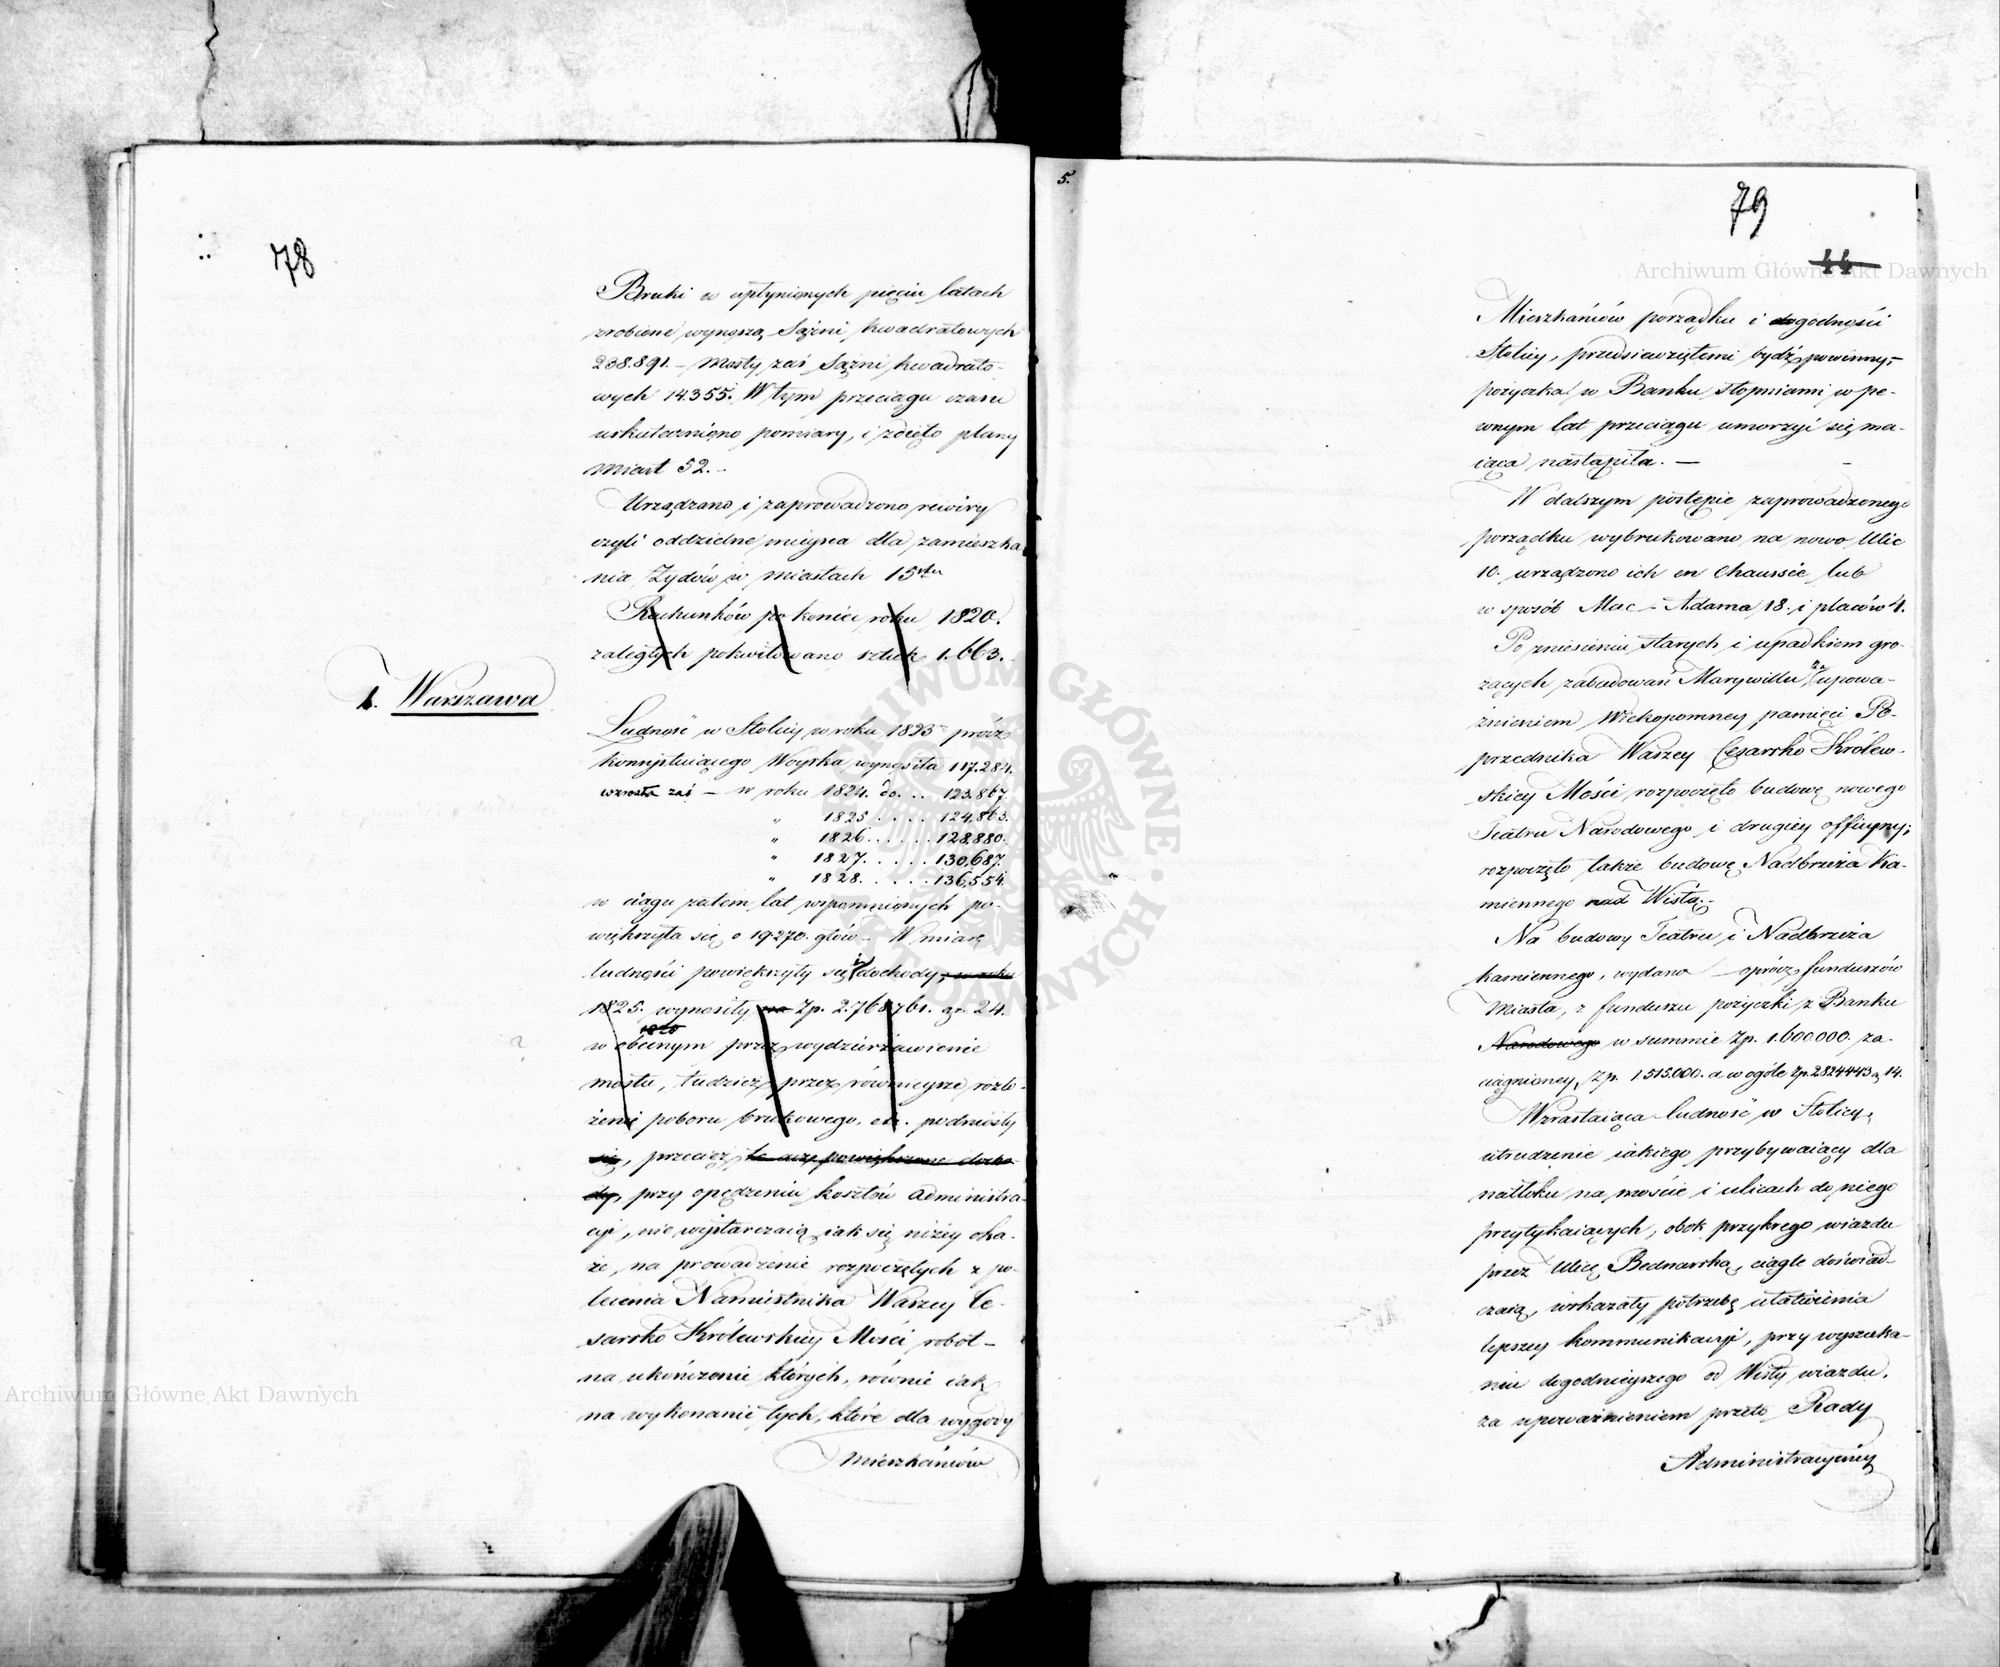 78
Bruki w upłynionych pięciu latach
zrobione wynoszą Sążni kwadratowych
238.891. – Mosty zaś Sążni kwadrato-
wych 14.355. W tym przeciągu czasu
uskuteczniono pomiary, i zdięto plany
Miast 52. –
Urządzono i zaprowadzono rewiry
czyli oddzielne mieysca dla zamieszka
nia Żydów w miastach 15stu
Rachunków po koniec roku 1820.
zaległych pokwitowano sztuk 1.663.
1. Warszawa
Ludność w Stolicy w roku 1823 prócz
konsystuiącego Woyska wynosiła 117.284.
wzrosła zaś – w roku 1824. do. . . 123,867.
" 1825 . . . . 124,863.
" 1826 . . . . . 128,880.
" 1827. . . . . 130,687.
" 1828. . . . . 136,554.
w ciągu zatem lat wspomnionych po-
większyła się o 19.270. głów – W miarę
ludności powiększyły się i dochody, w roku
1825. wynosiły na Zp. 2.768,761. gr. 24.
1828
w obecnym przez wydzierżawienie
mostu, tudzież przez równieysze rozło-
żenie poboru brukowego, etc. podniosły
się, przecięż te acz powiększone docho-
dy, przy opędzeniu kosztów administra-
cyi, nie wystarczaią, iak się niżey oka-
że, na prowadzenie rozpoczętych z po-
lecenia Namiestnika Waszey Ce-
sarsko Królewskiey Mości robót –
na ukończenie których, równie iak
na wykonanie tych, które dla wygody
Mieszkańców
5.
79
44
Mieszkańców porządku i dogodności
Stolicy, przedsiewziętemi bydź powinny,–
pożyczka w Banku stopniami w pe-
wnym lat przeciągu umorzyć się ma-
iąca nastąpiła. –
W dalszym postępie zaprowadzonego
porządku wybrukowano na nowo Ulic
10. urządzono ich en Chaussée lub
w sposób Mac-Adama 18. i placów 4.
Po zniesieniu starych i upadkiem gro-
żących zabudowań Marywillu, za upowa-
żnieniem Wiekopomney pamięci Po-
przednika Waszey Cesarsko Królew-
skiey Mości rozpoczęto budowę nowego
Teatru Narodowego i drugiey officyny;
rozpoczęto także budowę Nadbrzeża Ka-
miennego nad Wisłą.–
Na budowy Teatru i Nadbrzeża
kamiennego, wydano – oprócz funduszów
Miasta, z funduszu pożyczki z Banku
Narodowego w summie Zp. 1.600.000. za-
ciągnioney, Zp. 1515.000. a w ogóle Zp. 2824443 g 14.
Wzrastaiąca ludność w Stolicy,
utrudzenie iakiego przybywaiący dla
natłoku na moście i ulicach do niego
przytykaiących, obok przykrego wiazdu
przez Ulicę Bednarską, ciągle doświad-
czaią, wskazały potrzebę ułatwienia
lepszey kommunikacyi, przy wyszuka-
niu dogodnieyszego od Wisły wiazdu,
za upoważnieniem przeto Rady
Administracyiney
Archiwum Główne Akt Dawnych
Archiwum Główne Akt Dawnych
ARCHIWUM GŁÓWNE AKT DAWNYCH